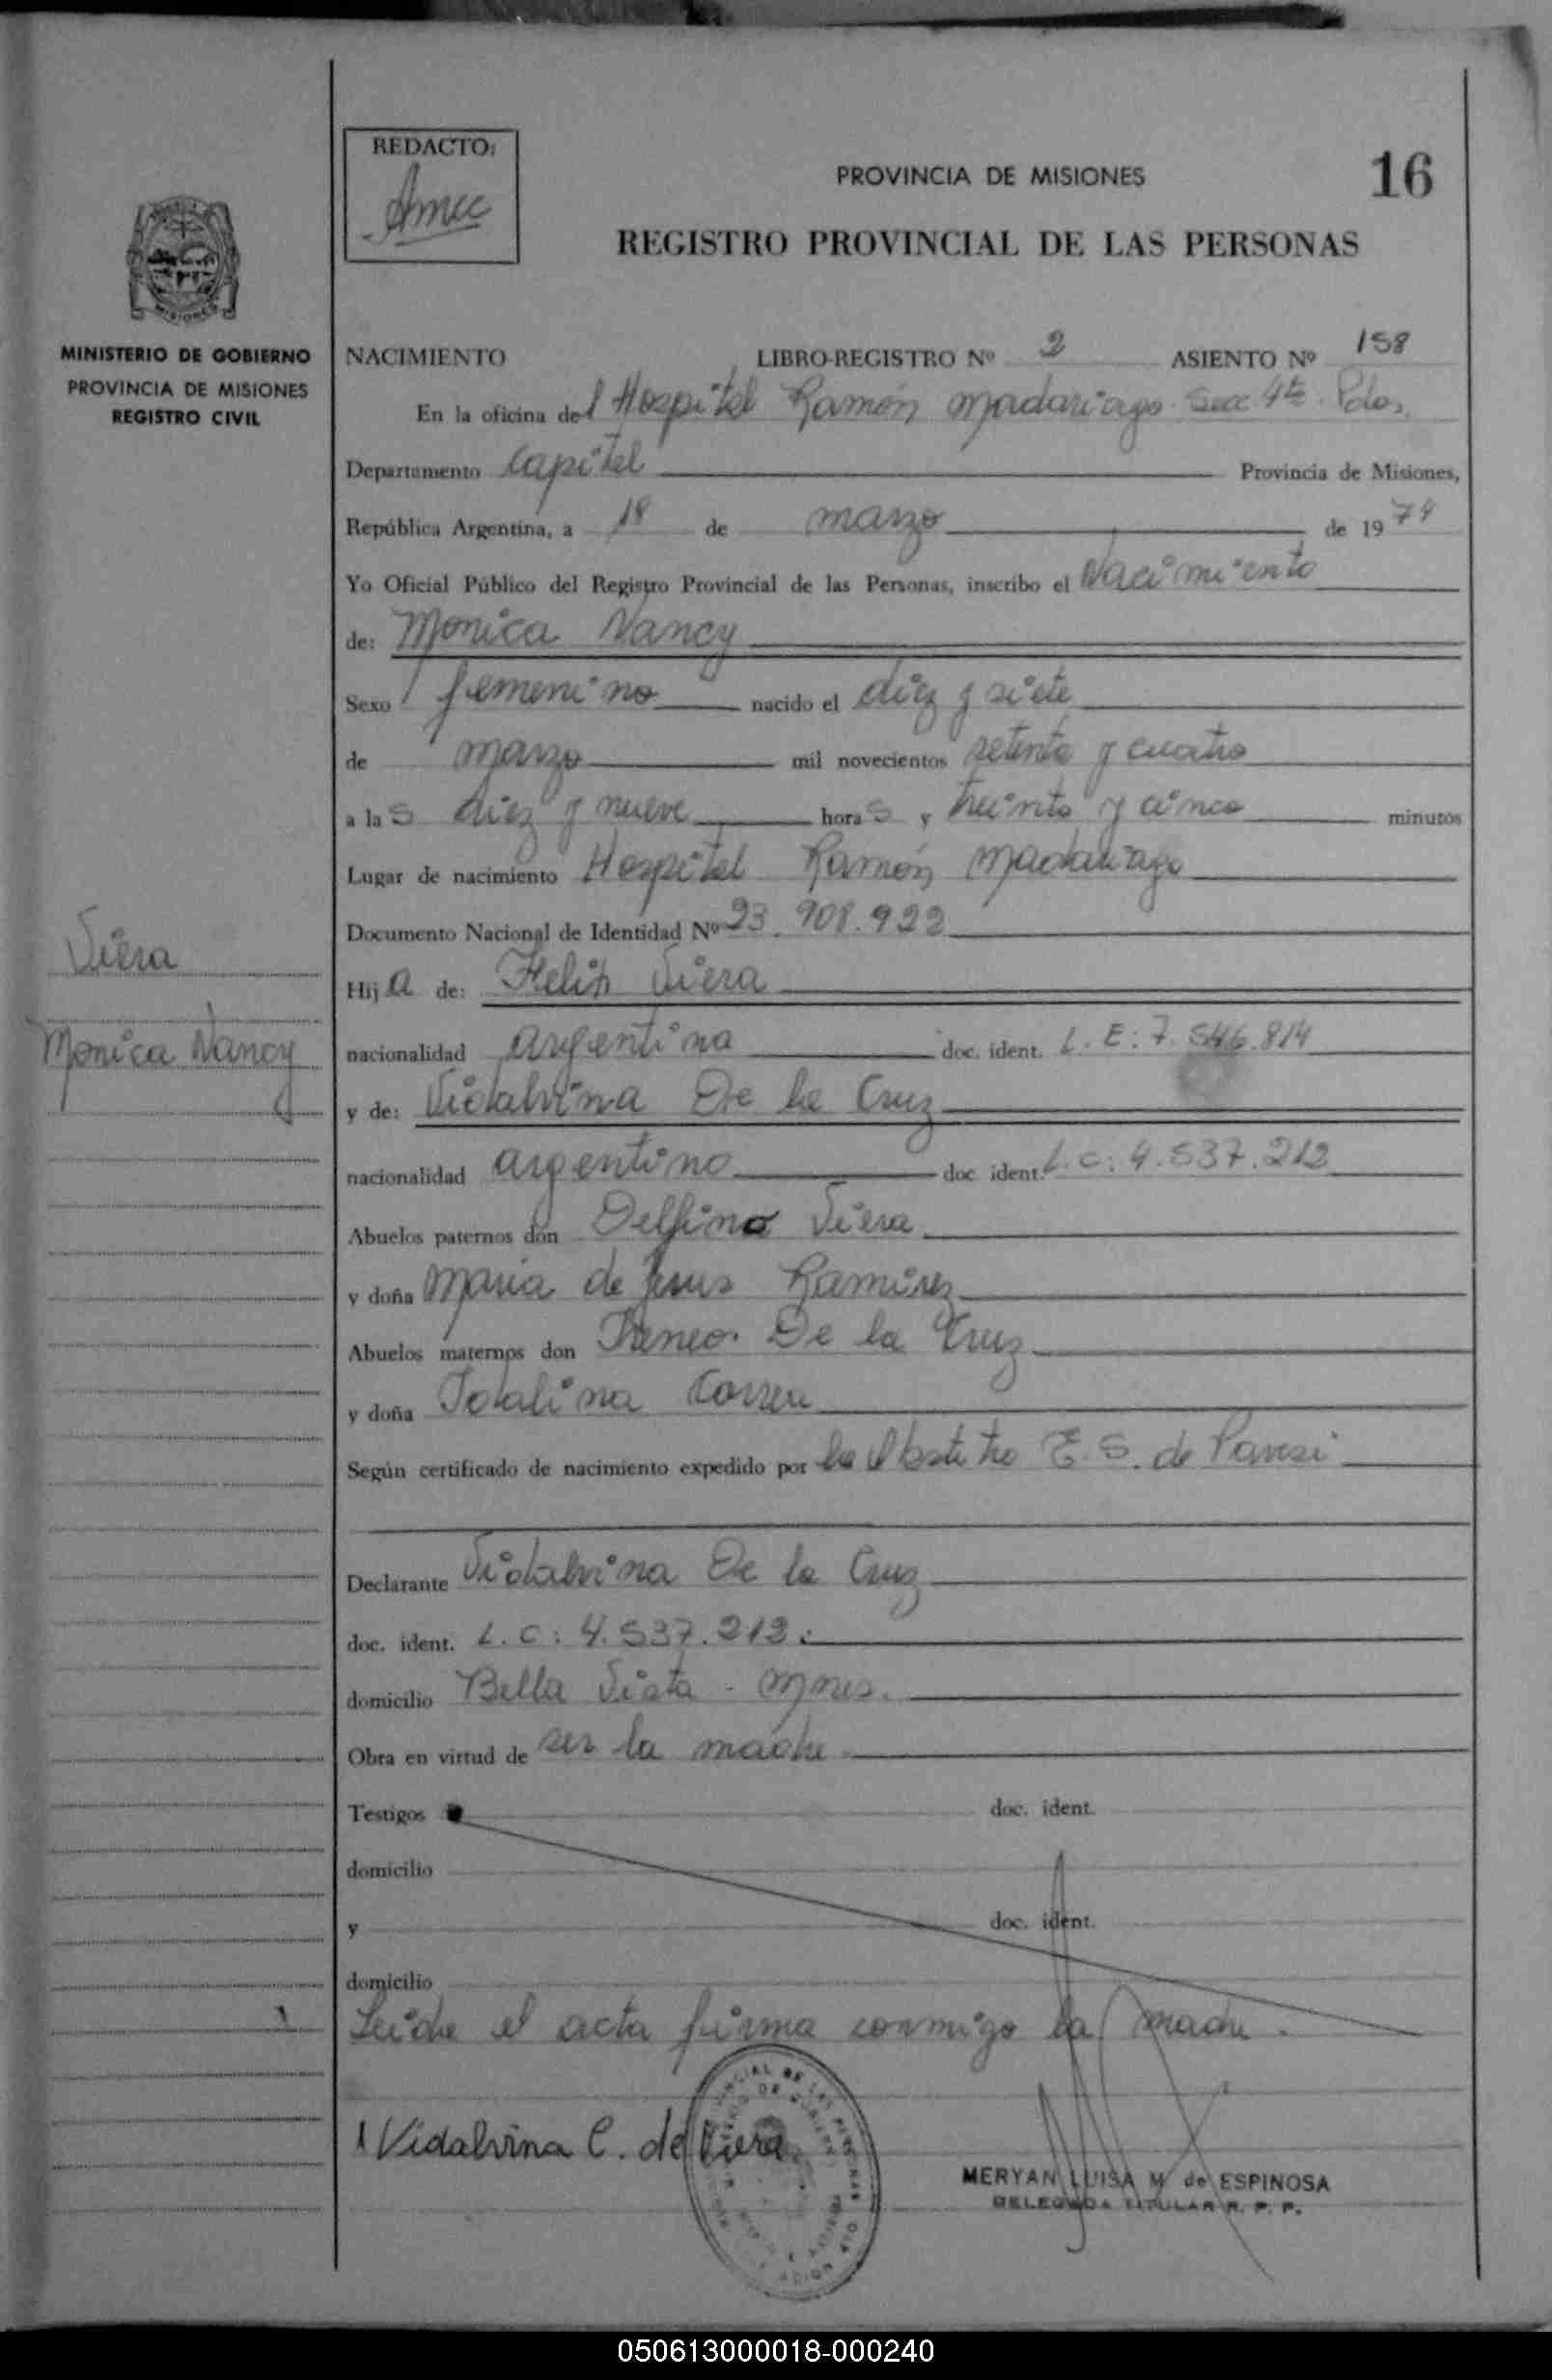 REDACTO:
Amec
PROVINCIA DE MISIONES
16
REGISTRO PROVINCIAL DE LAS PERSONAS
MISIONES
MINISTERIO DE GOBIERNO
PROVINCIA DE MISIONES
REGISTRO CIVIL
NACIMIENTO LIBRO-REGISTRO Nº 2 ASIENTO Nº 158
En la oficina del Hospital Ramón Madariaga Secc 4ta Pdas.
Departamento Capital Provincia de Misiones,
República Argentina, a 18 de marzo de 1974
Yo Oficial Público del Registro Provincial de las Personas, inscribo el Nacimiento
de: Monica Nancy
Sexo femenino nacido el diez y siete
de marzo mil novecientos setenta y cuatro
a las diez y nueve horas y treinta y cinco minutos
Lugar de nacimiento Hospital Ramón Madariaga
Documento Nacional de Identidad Nº 23.908.922
Viera
Monica Nancy
Hija de: Felix Viera
nacionalidad argentina doc. ident. L.E: 7.546.814
y de: Vidalvina De la Cruz
nacionalidad argentina doc ident. L.C: 4.537.212
Abuelos paternos don Delfino Viera
y doña Maria de Jesus Ramirez
Abuelos maternos don Ireneo De la Cruz
y doña Idalina Correa
Según certificado de nacimiento expedido por la Obstetra E. S. de Pavesi
Declarante Vidalvina De la Cruz
doc. ident. L.C: 4.537.212.
domicilio Bella Vista - Mnes.
Obra en virtud de ser la madre
Testigos doc. ident.
domicilio
y doc. ident.
domicilio
Leida el acta firma conmigo la madre.
Vidalvina C. de Viera
MERYAN LUISA M de ESPINOSA
DELEGADA TITULAR R. P. P.
050613000018-000240